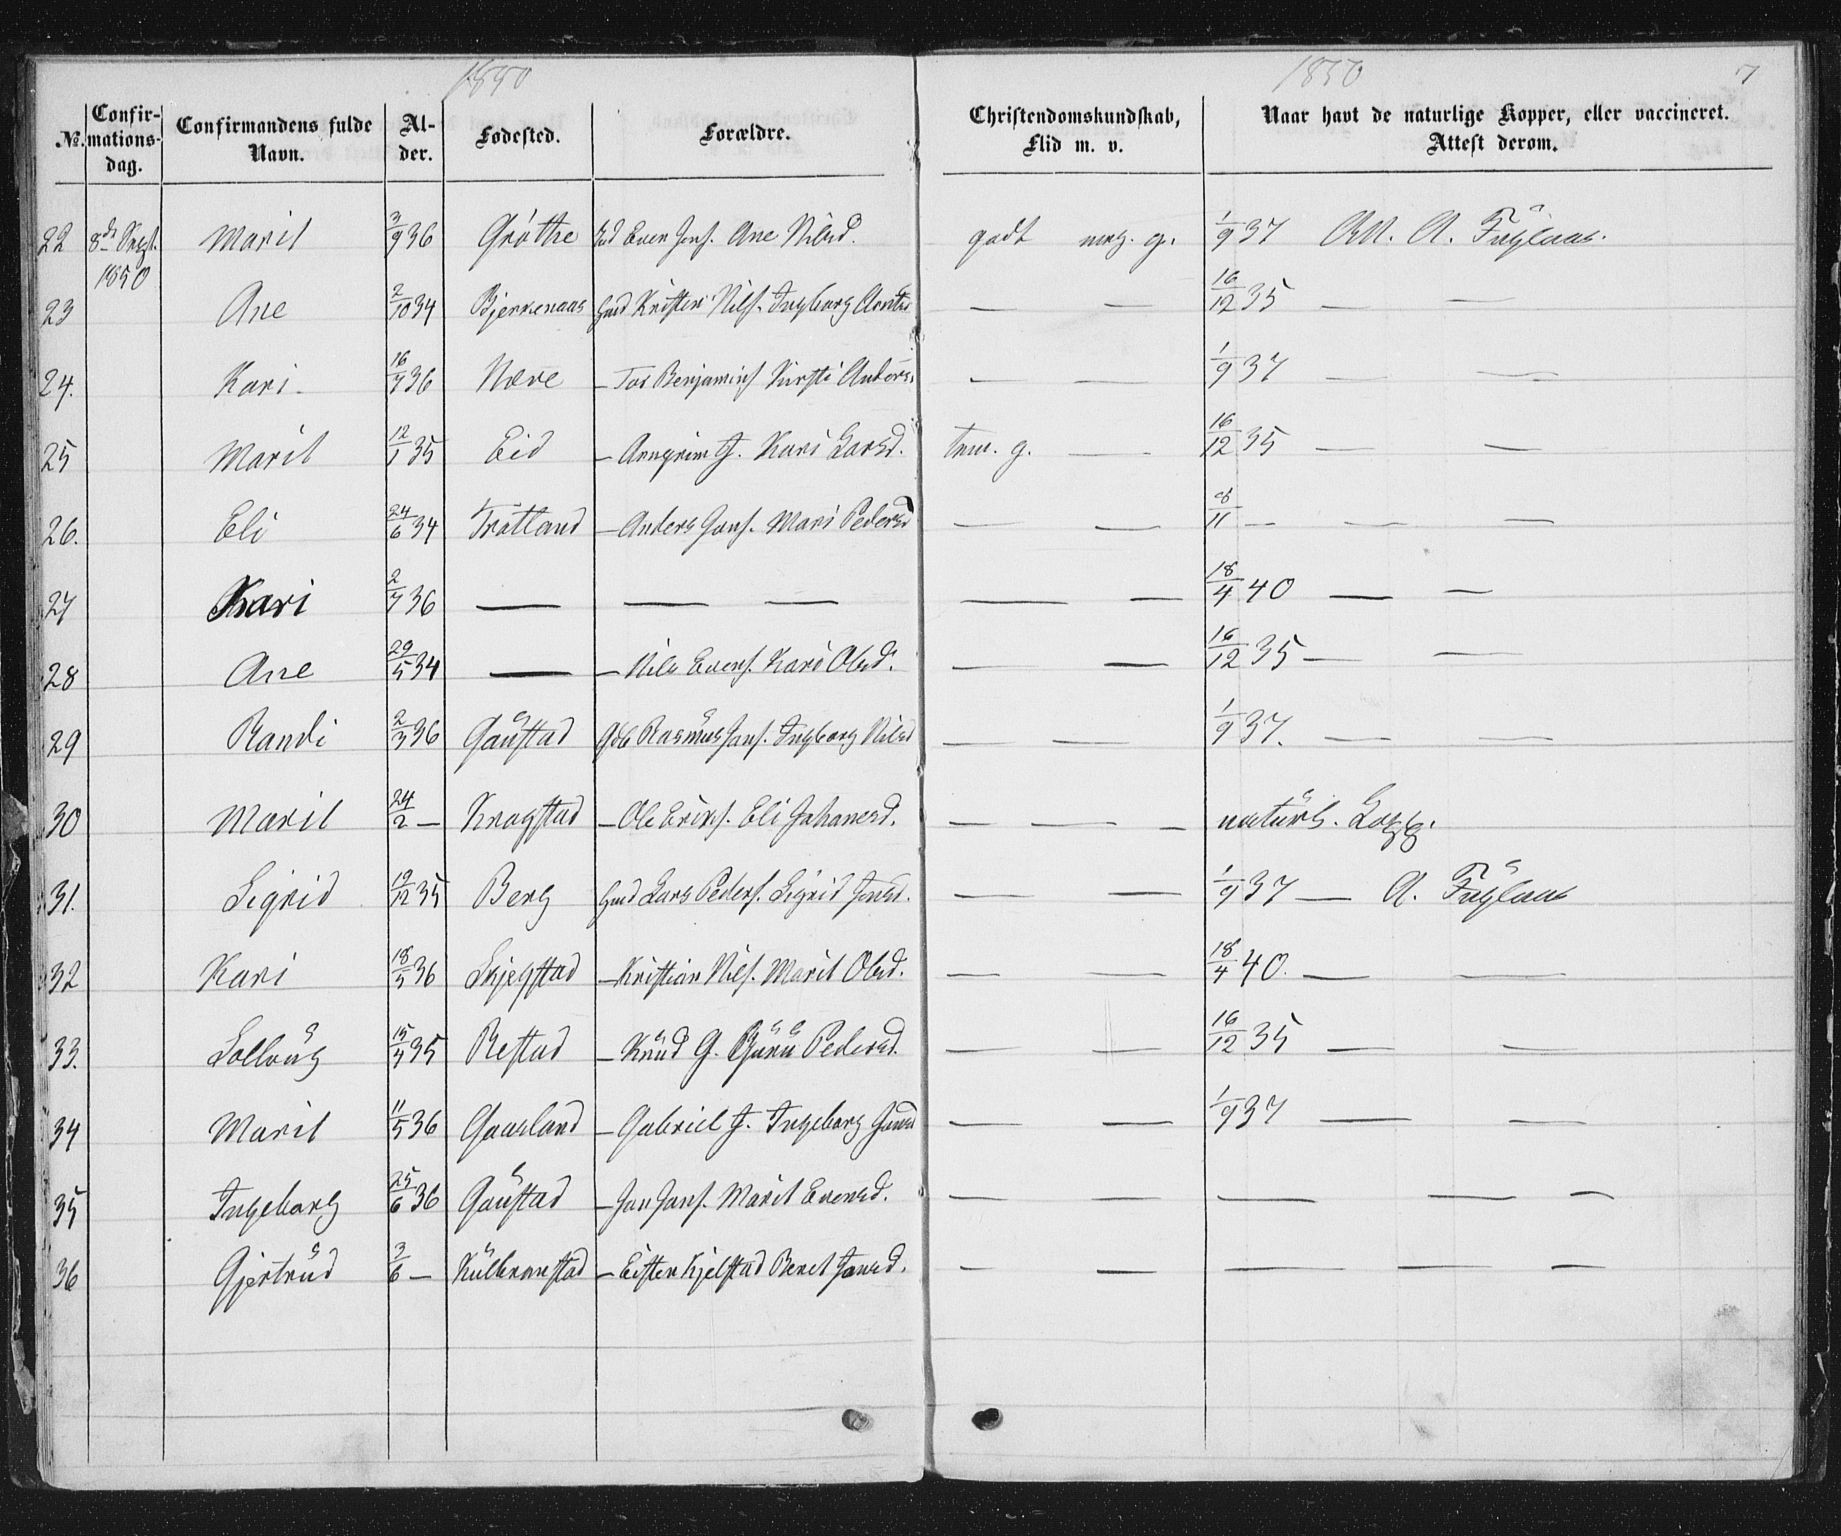 1850 1850 7
No. Confirmationsdag. Confirmandens fulde Navn. Alder. Fødested. Forældre. Christendomskundskab, Flid m. v. Naar havt de naturlige Kopper, eller vaccineret. Attest derom.
22 8de Sept. 1850 Marit 3/9 36 Grøthe Even Jons. Ane Nilsd. godt meg. g. 1/9 37 A. Fuglaas.
23 Ane 2/10 34 Bjerkenaas Gmd Kristen Nils. Ingborg — — 16/12 35 — —
24. Kari 16/7 36 Nere — Benjamins. Kirsti Anders. — — 1/9 37 — —
25 Marit 12/1 35 Eid — Arngrim J. Kari Larsd. tem. g. — — 16/12 35 — —
26. Eli 24/6 34 Trøtland — Anders Jons. Mari Pedersd — — /11 — — —
27 Kari 2/7 36 — — — — — 18/4 40 — —
28 Ane 29/5 34 — — Nils Evens. Kari Olsd. — — 16/12 35 — —
29 Randi 2/3 36 Gaustad Rasmus Jons. Ingborg Nilsd — — 1/9 37. — —
30 Marit 24/2 — Kragstad — Ole Eriks. Eli Johansd. — — — naturl. Kopp.
31. Sigrid 19/12 35 Berg Gmd Lars Peders. Sigrid Jonsd. — — 1/9 37 — A. Fuglaas
32 Kari 18/5 36 Skjelstad — Kristian Nils. Marit Olsd. — — 18/4 40. — —
33. Sollaug 15/4 35 Restad — Knud G. Guru Pedersd. — — 16/12 35 — —
34 Marit 11/5 36 Gaasland — Gabriel J. Ingeborg Jonsd — — 1/9 37 — —
35 Ingeborg 25/6 36 Gaustad — Jon Jons. Marit Evensd. — — — — —
36 Gjertrud 3/6 — Kulbranstad — Eisten Kjelstad Beret Jonsd. — — — — —